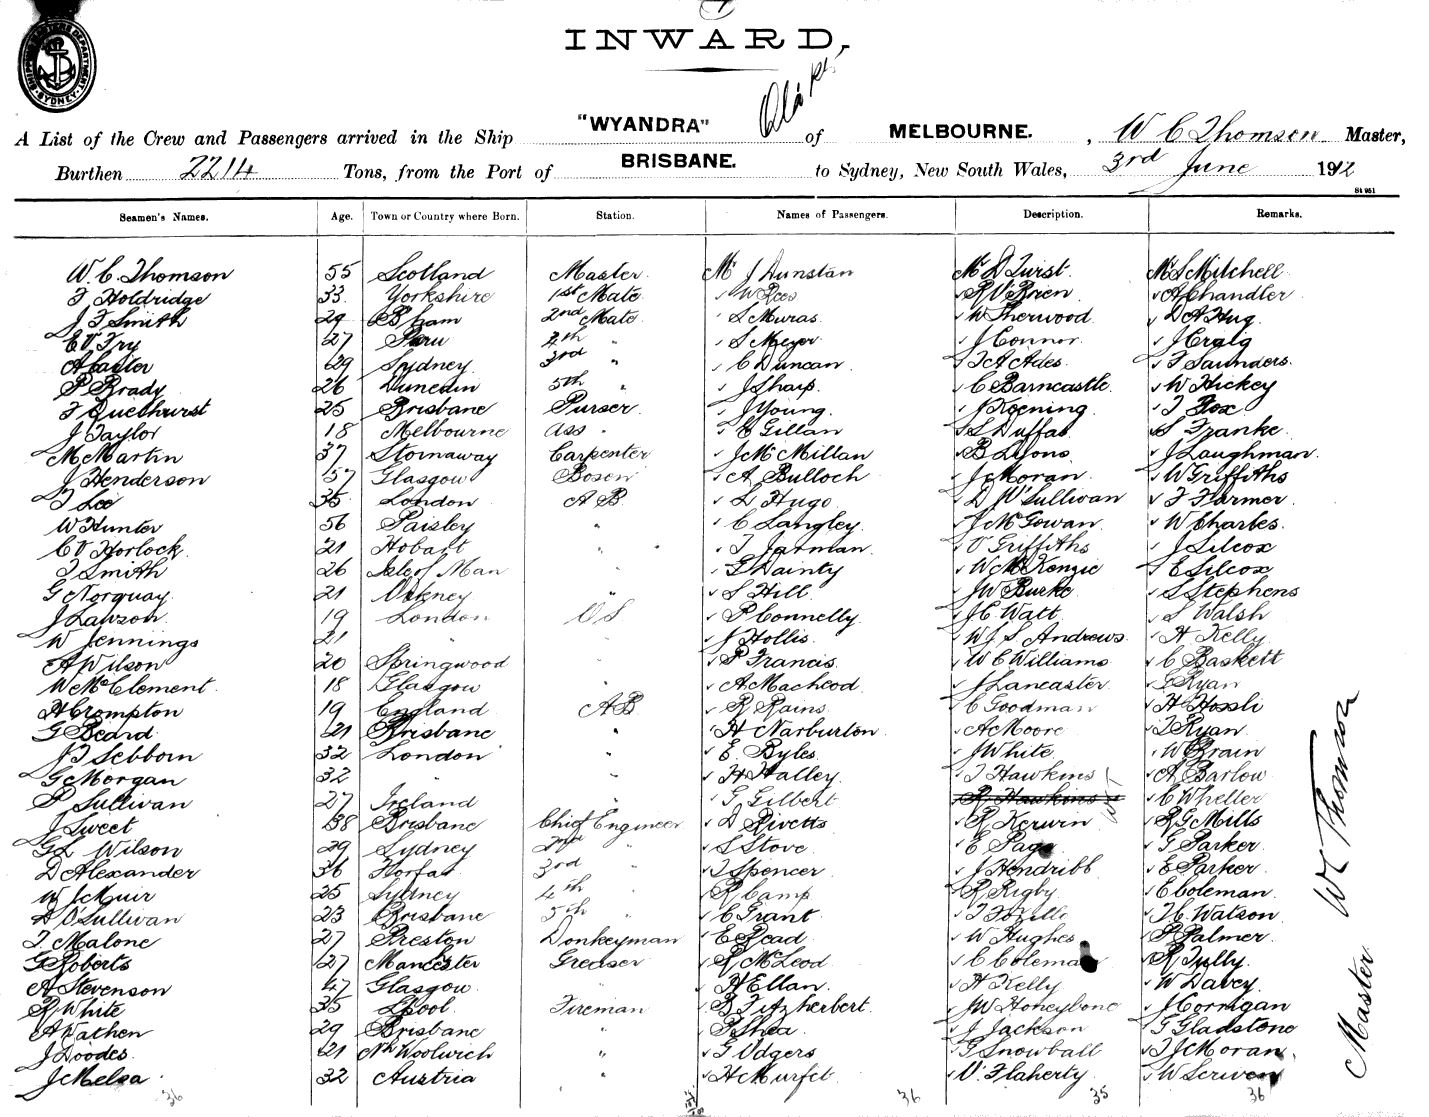 INWARD.
SHIPPING MASTERS DEPARTMENT SYDNEY
A List of the Crew and Passengers arrived in the Ship "WYANDRA" of MELBOURNE. , W C Thomson Master,
Burthen 2214 Tons, from the Port of BRISBANE. to Sydney, New South Wales, 3rd June 1912
St 951
Seamen's Names. Age. Town or Country where Born. Station. Names of Passengers. Description. Remarks.
W. C. Thomson 55 Scotland Master. Mr J Dunstan Mr D Turst. Mr S Mitchell
F Holdridge 33 Yorkshire 1st Mate W Rees R O'Brien A Chandler
J F Smith 29 B'ham 2nd Mate S Muras W Sherwood D A Hug
C V Fry 27 Peru 4th " S Meyer J Connor J Craig
A Carter 29 Sydney 3rd " C Duncan F A Ades F Saunders
P Brady 26 Dunedin 5th " J Sharp C Barncastle W Hickey
F Duethurst 25 Brisbane Purser J Young J Koening T Fox
J Taylor 18 Melbourne Ass " E Gillan S Duffas S Franke
M Martin 37 Stornaway Carpenter J McMillan B Lyons J Laughman
J Henderson 57 Glasgow Bosen A Bulloch J Moran W Griffiths
T Lee 35 London A B L Hugo D O'Sullivan F Farmer
W Hunter 56 Paisley " C Langley J McGowan W Charles
C V Horlock 21 Hobart " T Jarman V Griffiths J Silcox
T Smith 26 Isle of Man G Dainty W McKenzie E Silcox
G Norquay 21 Orkney " S Hill J W Burke S Stephens
J Lawson 19 London O S P Connelly J C Watt S Walsh
W Jennings 21 " J Hollis W J S Andrews H Kelly
A Wilson 20 Springwood " P Francis W E Williams C Baskett
W McClement 18 Glasgow " A Macleod J Lancaster G Ryan
H Crompton 19 England A B R Rains C Goodman H Hossli
G Beard 21 Brisbane " H Narburton A Moore T Ryan
J F Sebborn 32 London " E Byles J White W Brain
G Morgan 32 " " H Halley T Hawkins A Barlow
P Sullivan 27 Ireland " G Gilbert R Hawkins C Wheller
J Sweet 38 Brisbane Chief Engineer D Rivetts R Kerwin R G Mills
G L Wilson 29 Sydney 2nd " S Stove E Page G Parker
D Alexander 36 Forfar 3rd " T Spencer J Hendribb E Parker
W J Muir 25 Sydney 4th " R Camp R Rigby E Coleman
D O'Sullivan 23 Brisbane 5th " C Grant T H Watson
T Malone 27 Preston Donkeyman E Read W Hughes P Palmer
G Roberts 27 Manchester Greaser R McLeod C Coleman R Tully
A Stevenson 47 Glasgow " H Ellan H Kelly W Davey
R White 35 L'pool Fireman B Fitzherbert J W Honeybone J Corrigan
A Wathen 29 Brisbane " P Shea J Jackson G Gladstone
J Doodes 21 Nth Woolwich " G Odgers G Snowball T J Moran
J Melsa 32 Austria " H Murfet V Flaherty W Scriven
36 36 35 36
Master W C Thomson